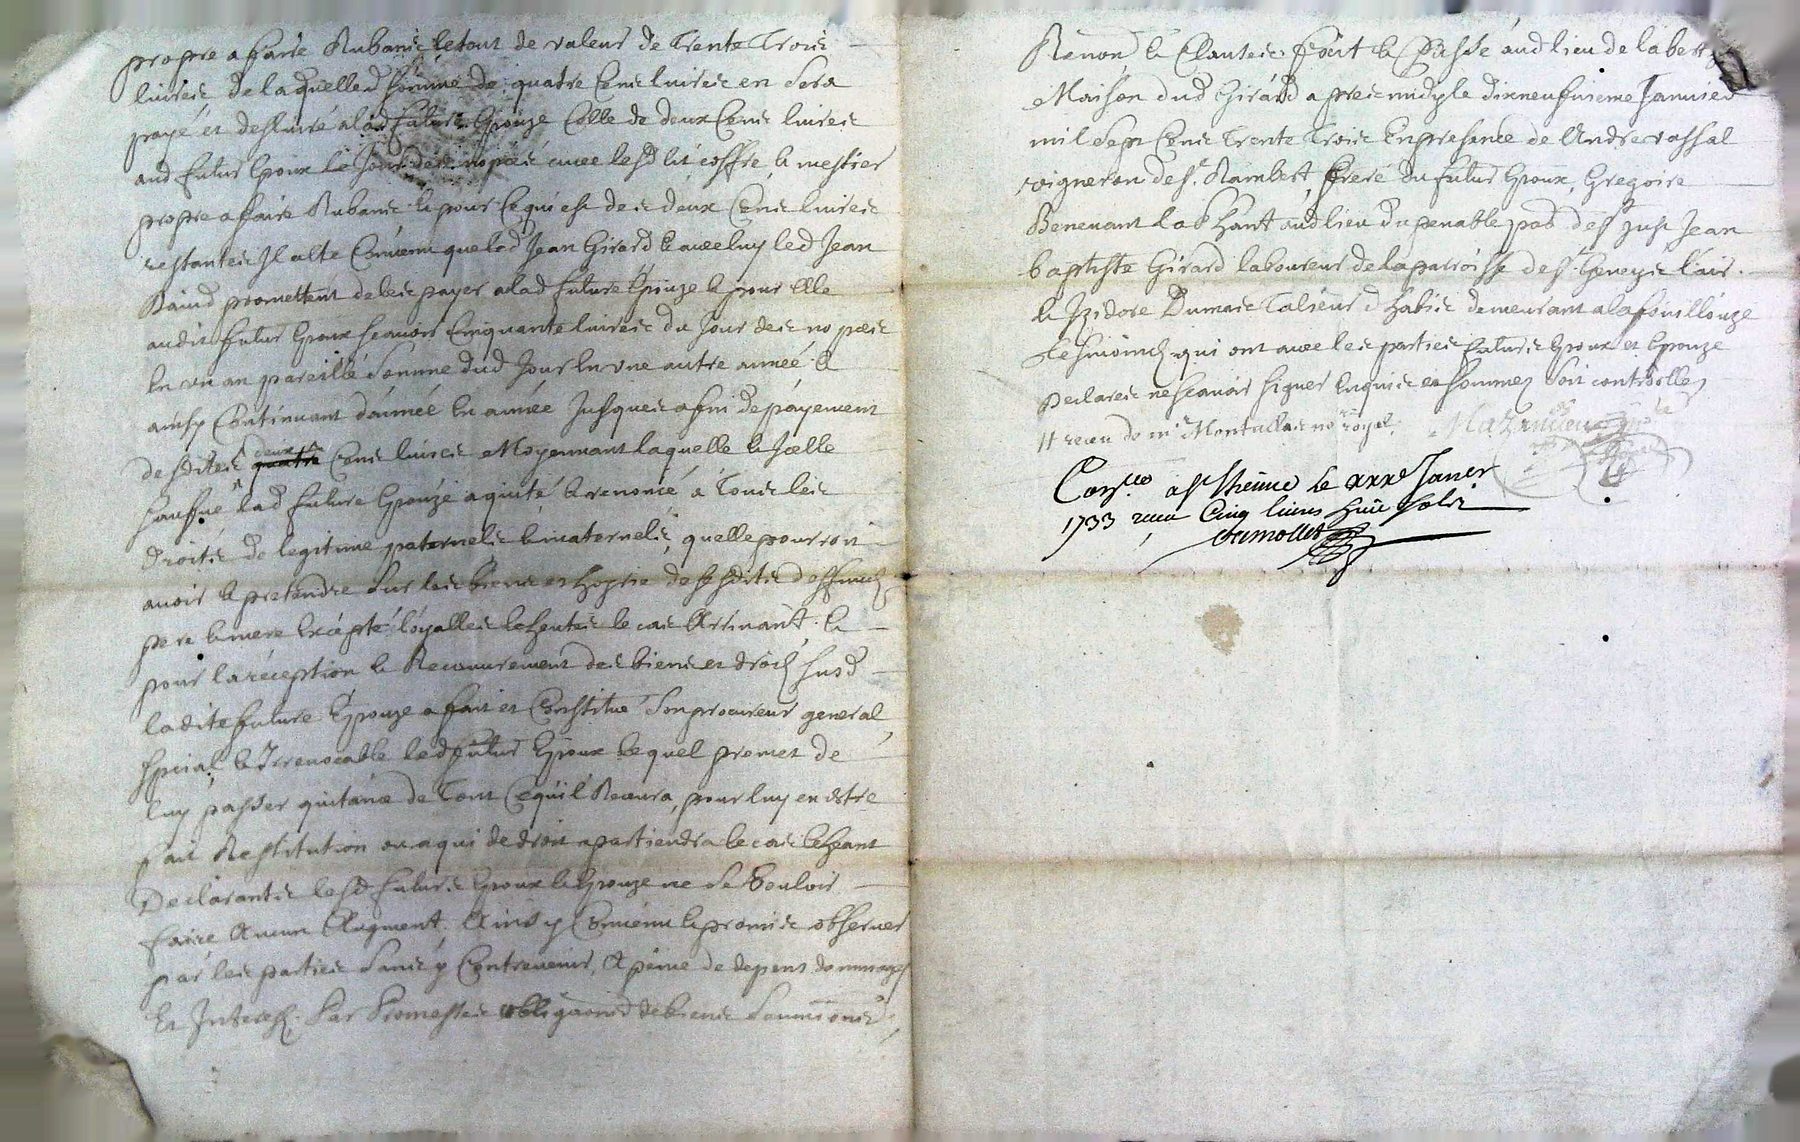 propre a faire Rubanc le tout de valeur de Trente Trois
livres de laquelled somme de quatre Cens livres en sera
payé et deslivré alad future Epouze Celle de deux Cens livres
aud futur Epoux le Jour des nopces avec lesd lit coffre, & mestier
propre a faire Rubans & pour Ce qui est des deux Cens livres
restantes Il a esté Convenu que led Jean Girard & avec luy led Jean
promettent de les payer alad future Epouze & pour Elle
audit futur Epoux scavoir Cinquante livres du Jour des nopces
En un an pareille somme dud Jour En une autre année &
ainsy Continuant d'année En année Jusques a fin de payement
desdites deux Cens livres Moyennant laquelle &
sauf lad future Epouze a quité & renoncé a Tous les
droits de legitime paternels & maternels, quelle pourroit
avoir & pretendre sur les biens et desdits deffunts
pere & mere Excepté loyalles Escheutes le cas Arrivant. &
pour la reception & Recouvrement des biens et droits susd
ladite future Epouze a fait et Constitué son procureur general
special & Irrevocable led futur Epoux lequel promet de
luy passer quitance de Tout Ce qu'il Recevra, pour luy en estre
fait Restitution ou a qui de droit apartiendra le cas Echeant
Declarants lesd futurs Epoux & Epouze ne se Vouloir
faire Aucun Augment, Ainsy Convenu & promis observer
par les parties sans y Contrevenir, A peine de depens dommages
Et Interests. Par Promesses obligaons de biens soumissions
Renon & Clauses, fait & Passé aud lieu de
Maison dud Girard apres midy le dixneufvieme Janvier
mil sept Cens Trente Trois En presence de Andre vassal
vigneron de St. Rambert, frere du futur Epoux, Gregoire
Benevant aud lieu du penable de St Just Jean
baptiste Girard laboureur de la parroisse de St. Geneys
& Izidore Dumas Talieur d'habis demeurant a la fouillouze
tesmoins qui ont avec les parties futurs Epoux et Epouze
Declarés ne scavoir signer Enquis et sommez soit controlles
receu de me not royal.
Con.lé a St Etienne le xxxe Janer
1733 receu Cinq livres huit sols